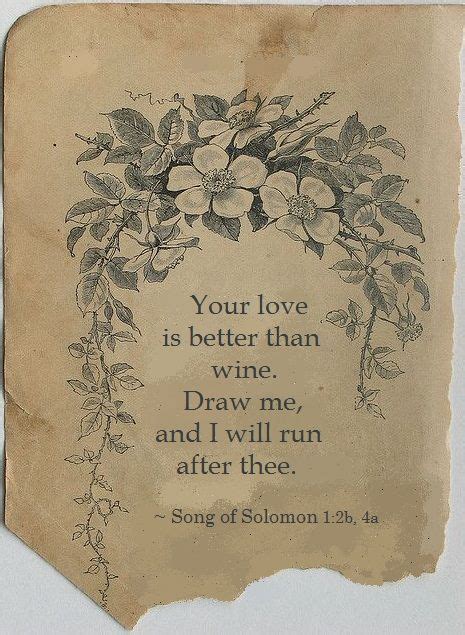 Your love
is better than
wine.
Draw me,
and I will run
after thee.
~ Song of Solomon 1:2b, 4a